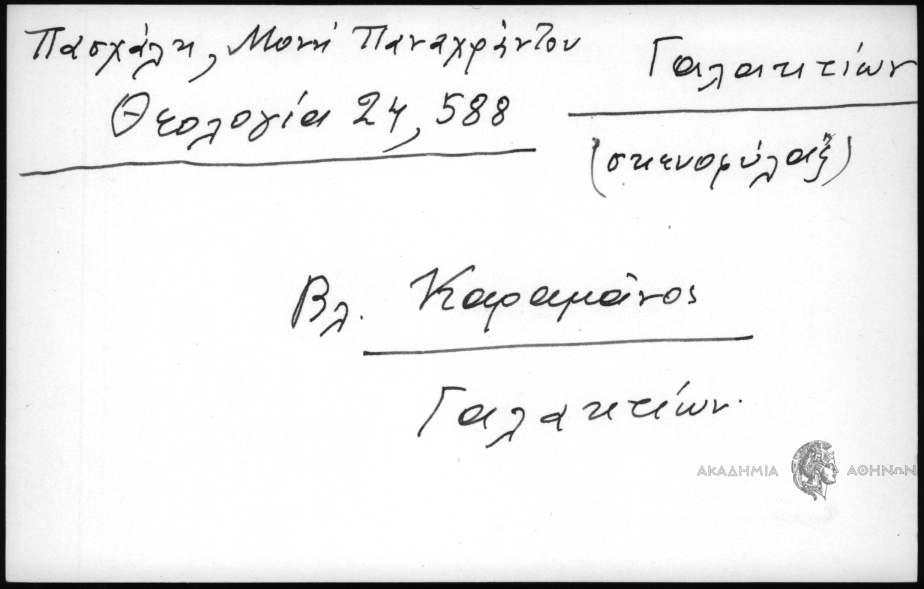 Πασχάλη, Μονή Παναχράντου
Θεολογία 24, 588
Γαλακτίων
(σκευοφύλαξ)
Βλ. Καραμάνος
Γαλακτίων.
ΑΚΑΔΗΜΙΑ ΑΘΗΝΩΝ